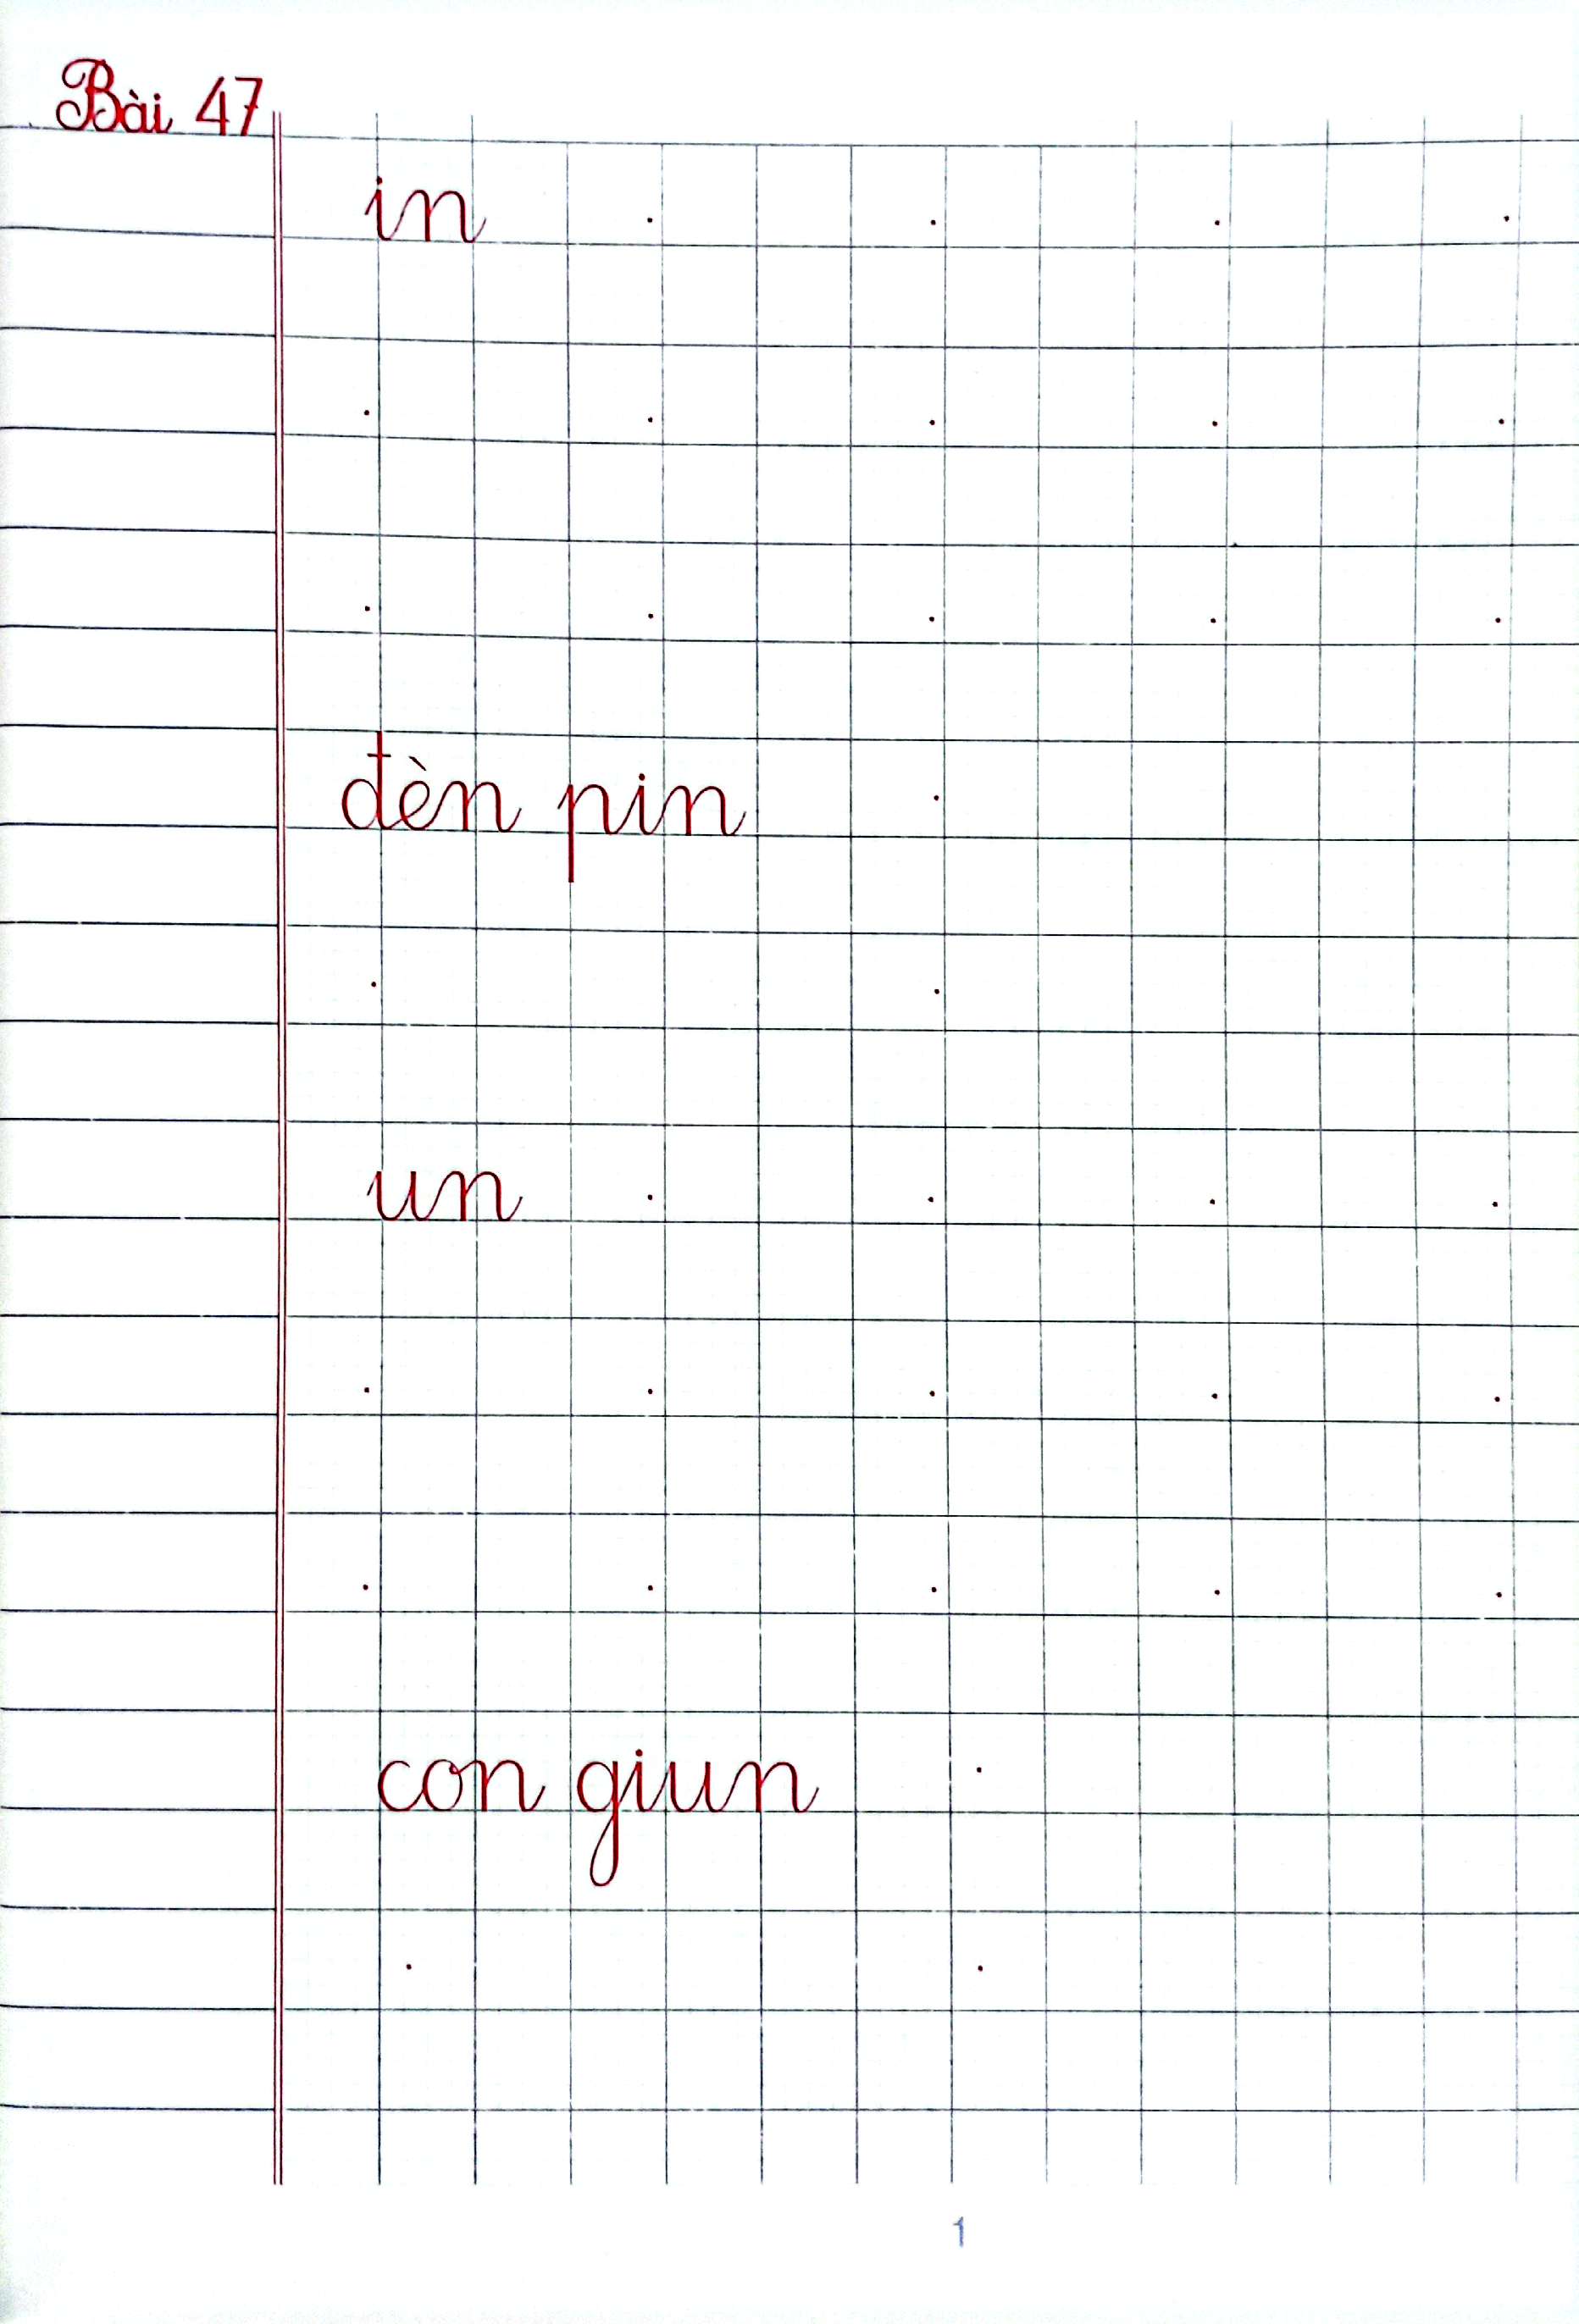 Bài 47
in
đèn pin
un
con giun
1